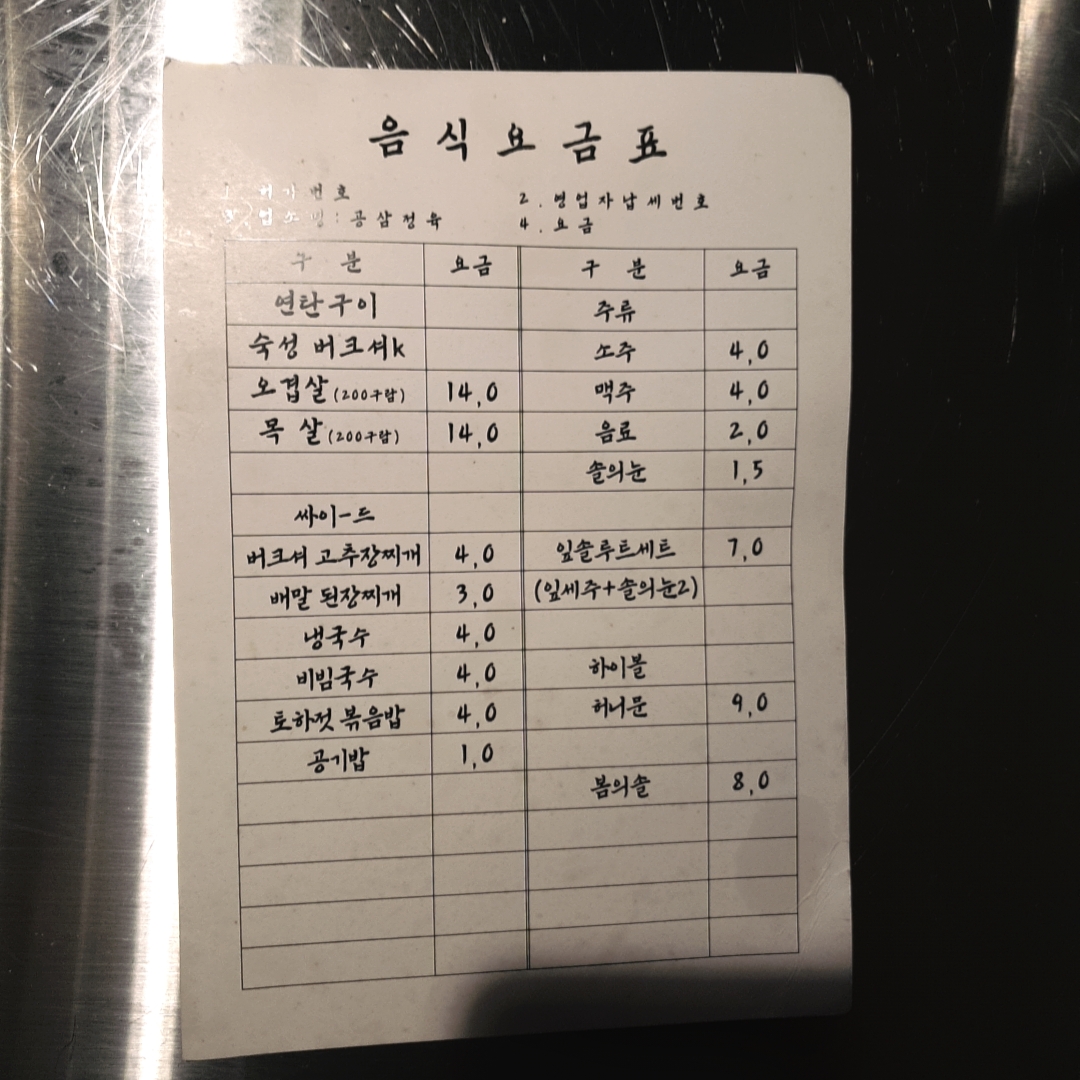 음식요금표
1. 허가번호
2. 영업자납세번호
3. 업소명:공삼정육
4. 요금
구 분 요금 구 분 요금
연탄구이 주류
숙성 버크셔k 소주 4,0
오겹살(200구람) 14,0 맥주 4,0
목 살(200구람) 14,0 음료 2,0
솔의눈 1,5
싸이-드
버크셔 고추장찌개 4,0 잎솔루트세트 7,0
배말 된장찌개 3,0 (잎세주+솔의눈2)
냉국수 4,0
비빔국수 4,0 하이볼
토하젓 볶음밥 4,0 허니문 9,0
공기밥 1,0
봄의솔 8,0